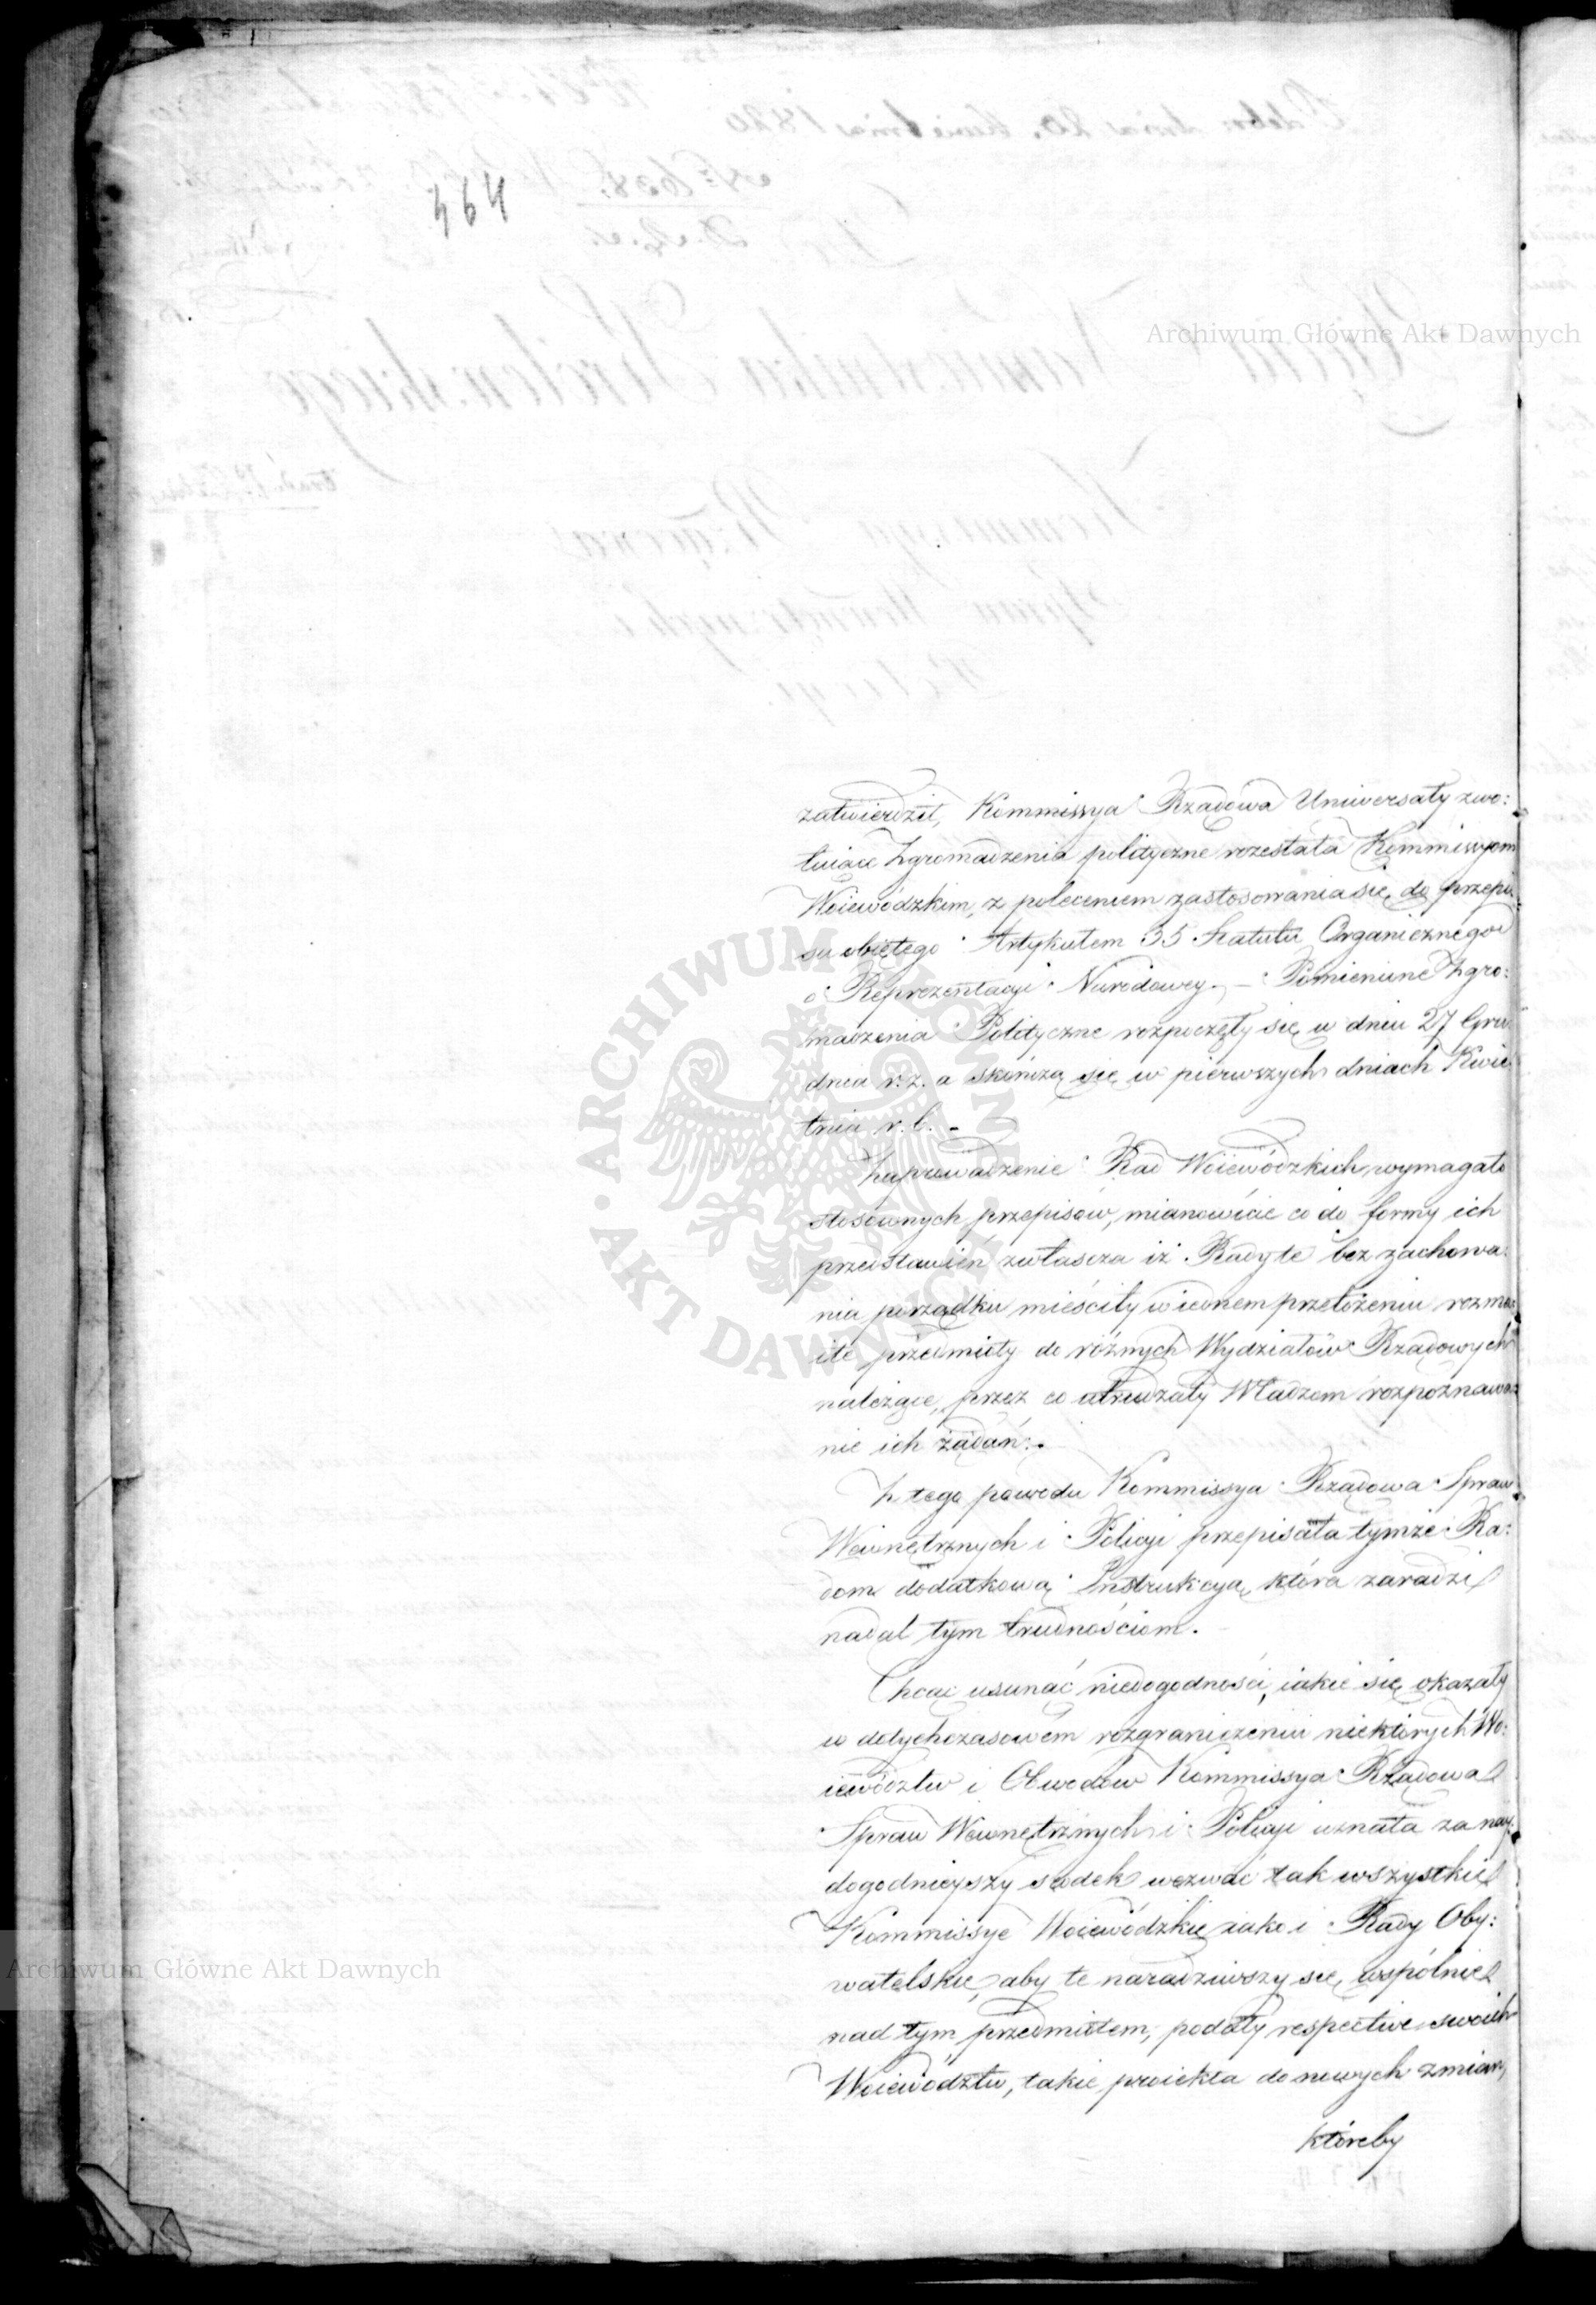 464
Archiwum Główne Akt Dawnych
zatwierdził, Kommissya Rządowa Uniwersały zwo:
łuiące Zgromadzenia polityczne rozesłała Kommissyom
Woiewódzkim, z poleceniem zastosowania się do przepi:
su obiętego Artykułem 35 Statutu Organicznego
o Reprezentacyi Narodowey. — Pomienione Zgro:
madzenia Polityczne rozpoczęły się w dniu 27 Gru
dnia r. z. a skończą się w pierwszych dniach Kwie
tnia r. b. -
Zaprowadzenie Rad Woiewódzkich, wymagało
stosownych przepisów, mianowicie co do formy ich
przedstawień zwłascza iż Rady te bez zachowa:
nia porządku mieściły w iednem przełożeniu rozma
ite przedmioty do różnych Wydziałów Rządowych
należące, przez co utrudzały Władzom rozpoznawa
nie ich żądań.
Z tego powodu Kommissya Rządowa Spraw
Wewnętrznych i Policyi przepisała tymże Ra:
dom dodatkową Instrukcyą, która zaradzi
nadal tym trudnościom.
Chcąc usunąć niedogodności, iakie się okazały
w dotychczasowém rozgraniczeniu niektórych Wo:
iewództw i Obwodów Kommissya Rządowa
Spraw Wewnętrznych i Policyi uznała za nay:
dogodnieyszy śrdek wezwać tak wszystkie
Kommissye Woiewódzkie iako i Rady Oby:
watelskie, aby te naradziwszy się, wspólnie
nad tym przedmiotem, podały respective swoich
Woiewództw, takie proiekta do nowych zmian,
któreby
Archiwum Główne Akt Dawnych
ARCHIWUM GŁÓWNE AKT DAWNYCH